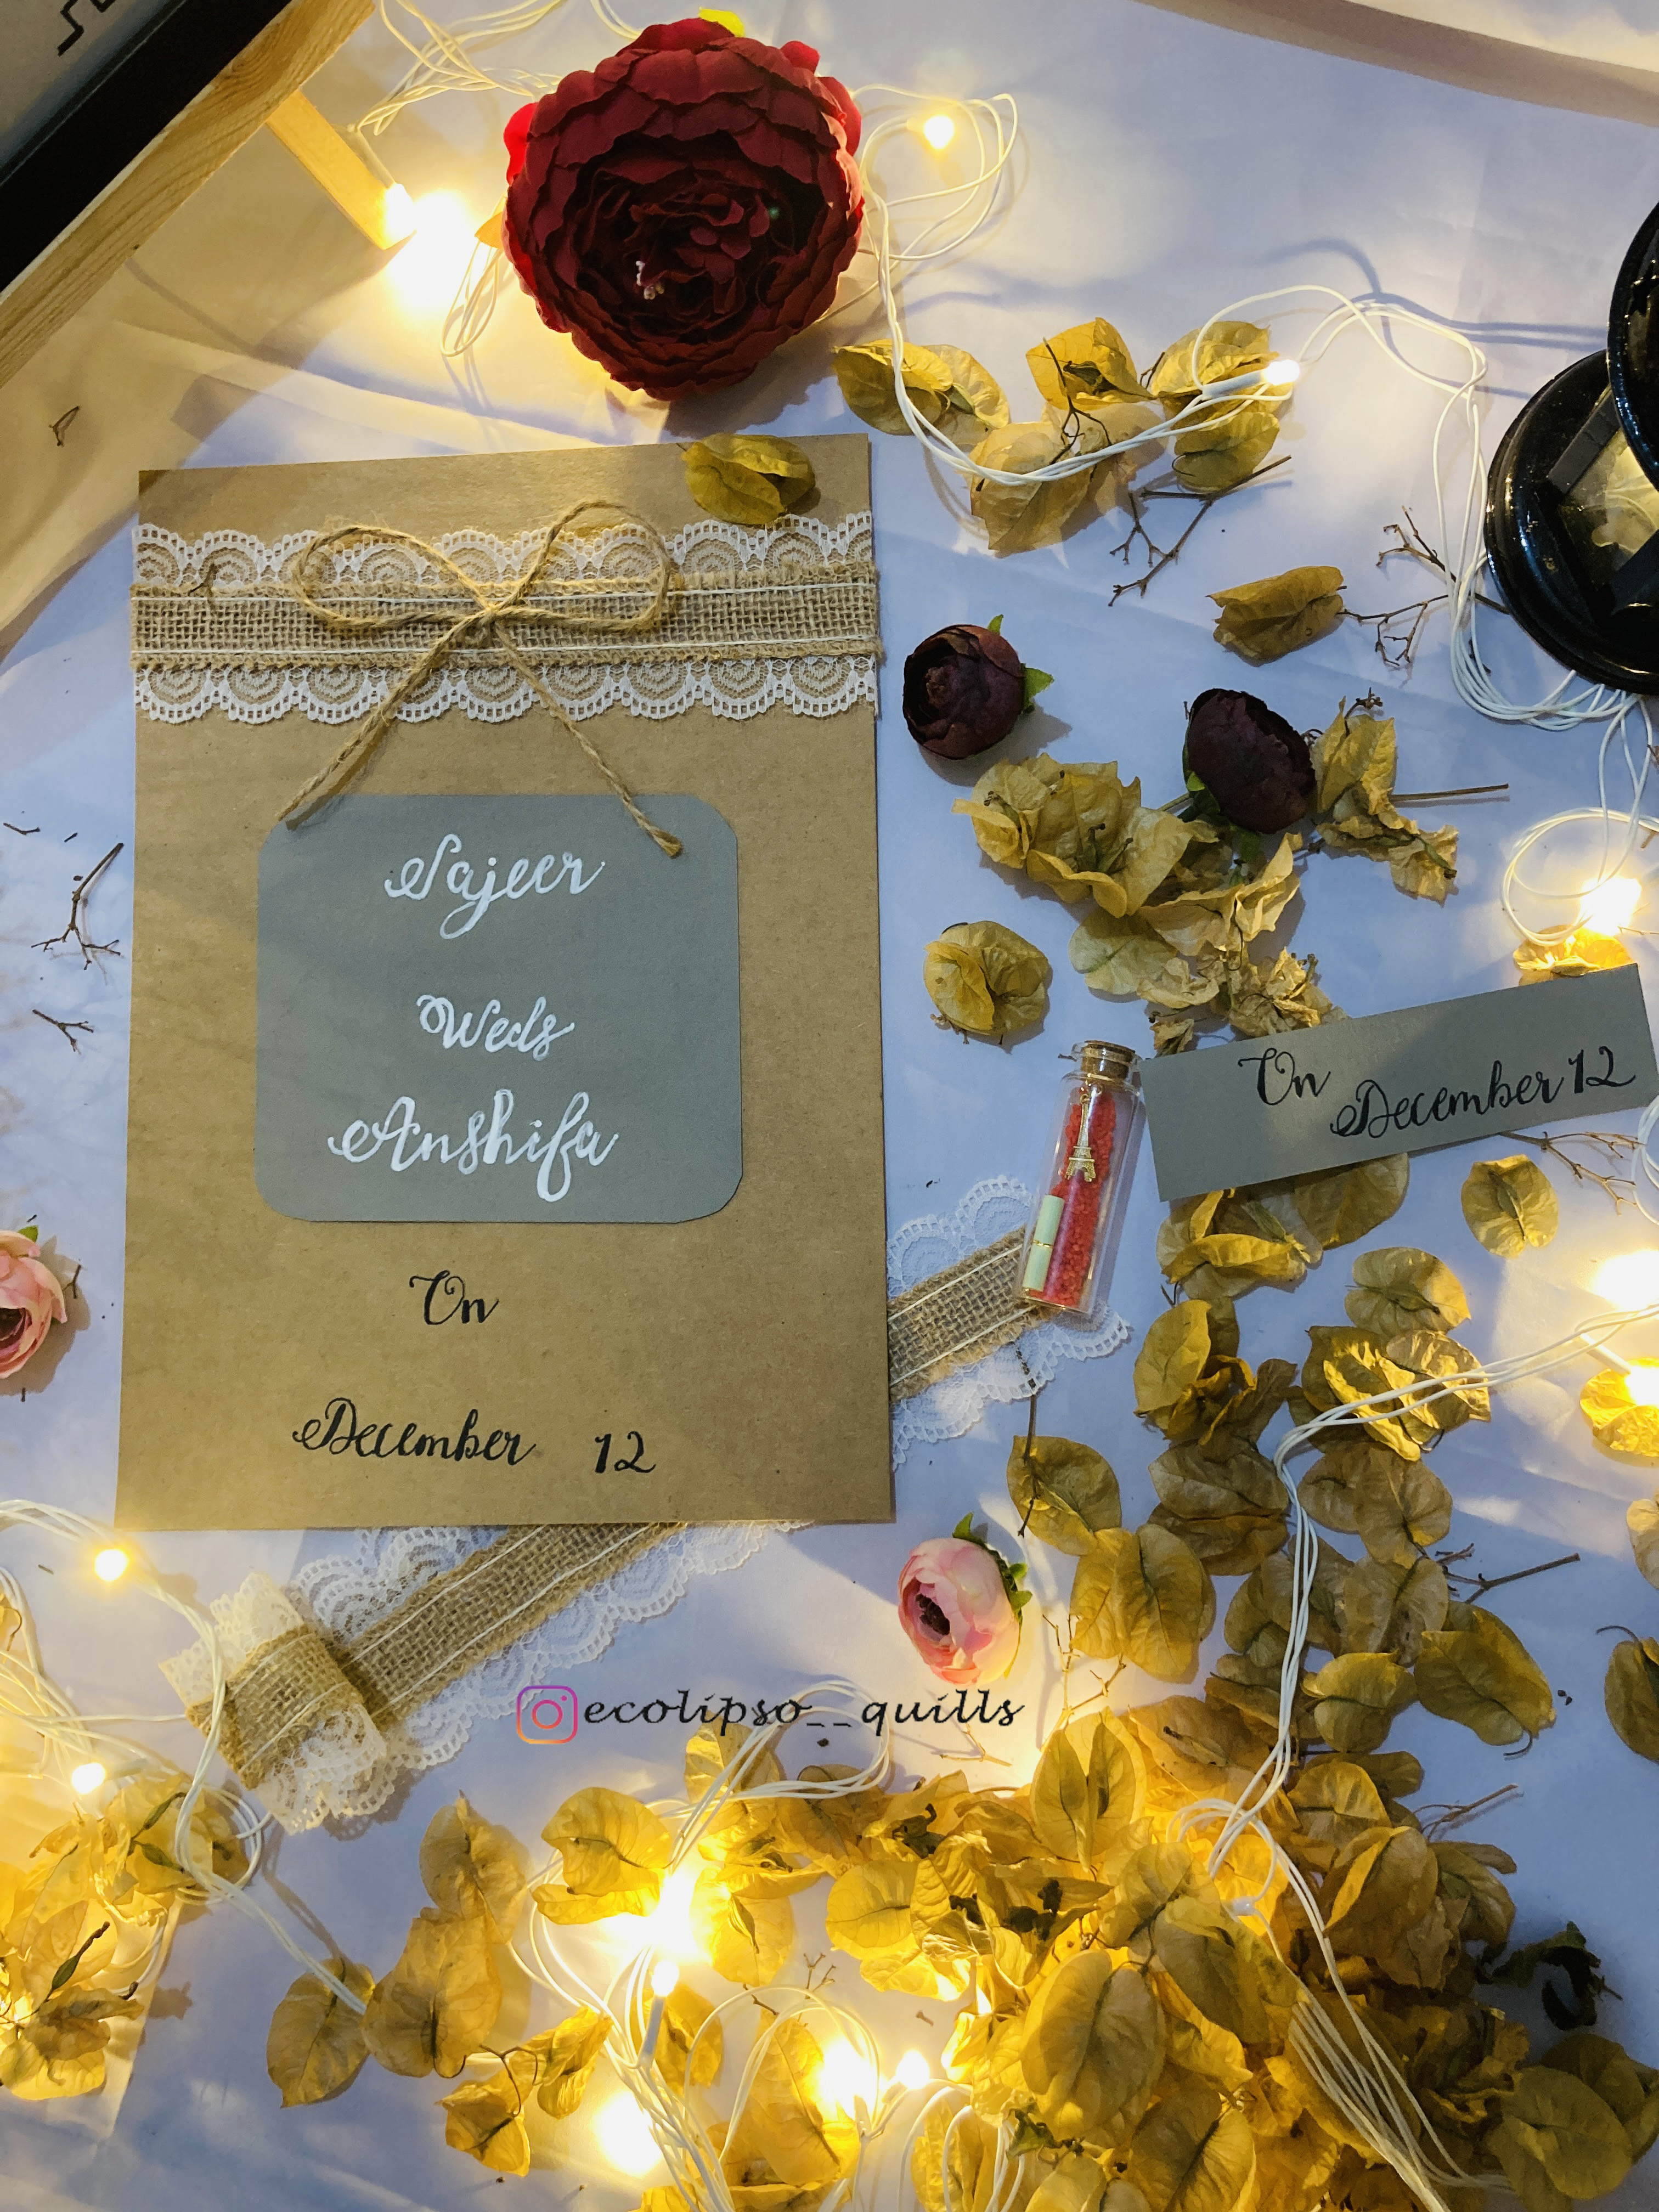 Sajeer
Weds
Anshifa
On
December 12
On
December 12
ecolipso__quills